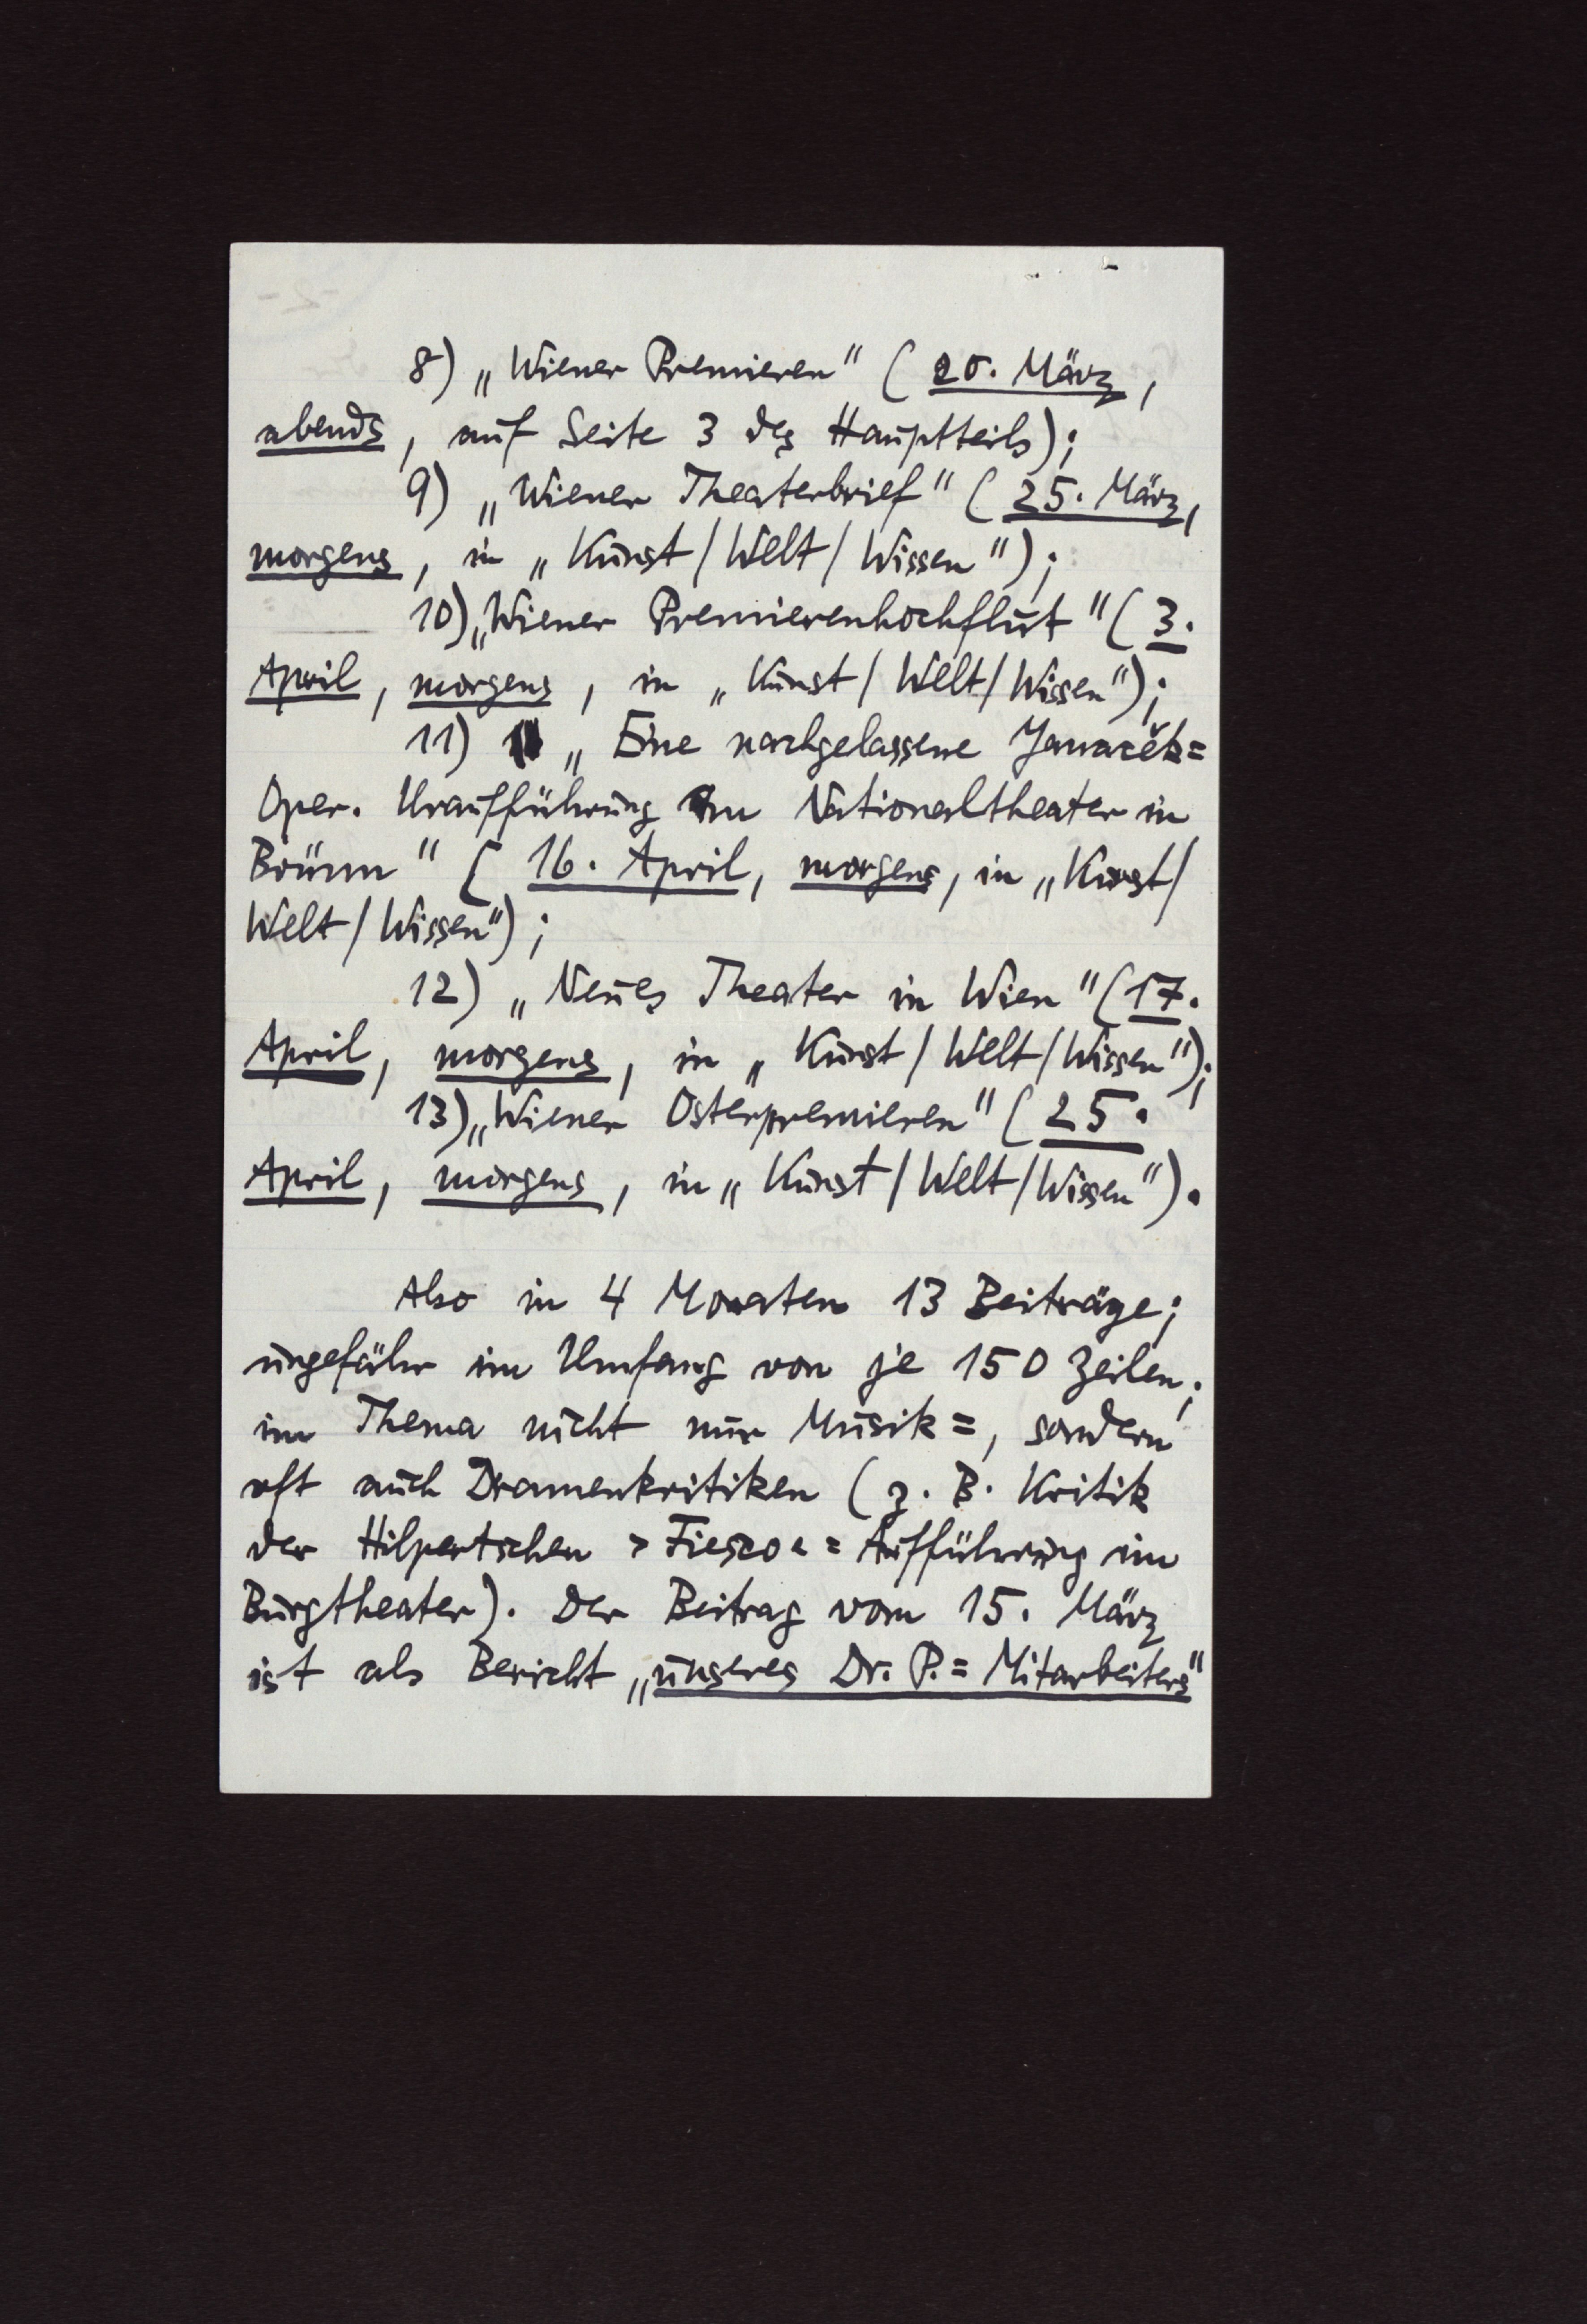 8) „Wiener Premieren" (20. März,
abends, auf Seite 3 des Hauptteils);
9) „Wiener Theaterbrief" (25. März,
morgens, in „Kunst/Welt/Wissen");
10) „Wiener Premierenhochflut" (3.
April, morgens, in „Kunst/Welt/Wissen");
11) „Eine nachgelassene Janacěk=
Oper. Uraufführung im Nationaltheater in
Brünn" (16. April, morgens, in „Kunst/
Welt/Wissen");
12) „Neues Theater in Wien" (17.
April, morgens, in „Kunst/Welt/Wissen");
13) „Wiener Osterpremieren" (25.
April, morgens, in „Kunst/Welt/Wissen").
Also in 4 Monaten 13 Beiträge;
ungefähr im Umfang von je 150 Zeilen;
im Thema nicht nur Musik=, sondern
oft auch Dramenkritiken (z. B. Kritik
der Hilpertschen >Fiesco<=Aufführung im
Burgtheater). Der Beitrag vom 15. März
ist als Bericht „unseres Dr. P.=Mitarbeiters"